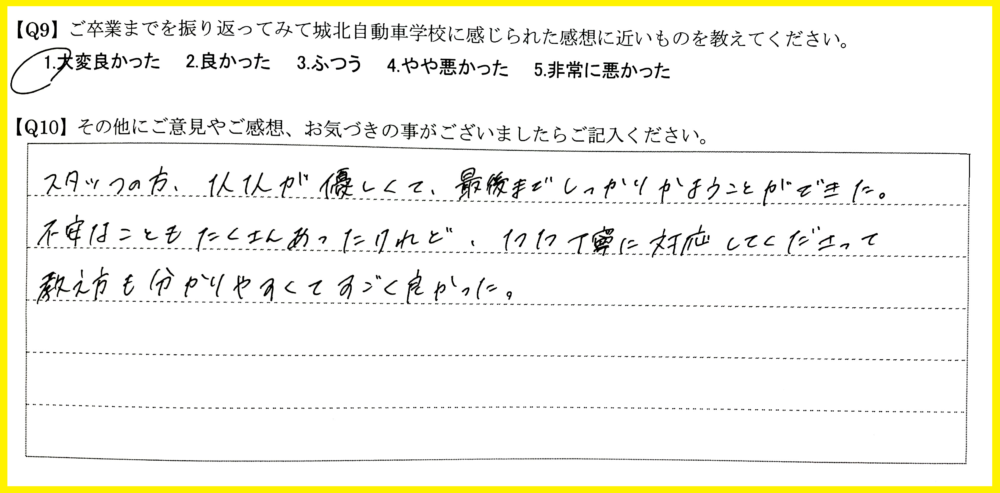 【Q9】ご卒業までを振り返ってみて城北自動車学校に感じられた感想に近いものを教えてください。
1.大変良かった 2.良かった 3.ふつう 4.やや悪かった 5.非常に悪かった
【Q10】その他にご意見やご感想、お気づきの事がございましたらご記入ください。
スタッフの方、1人1人が優しくて、最後までしっかりかようことができた。
不安なこともたくさんあったけれど、1つ1つ丁寧に対応してくださって
教え方も分かりやすくてすごく良かった。